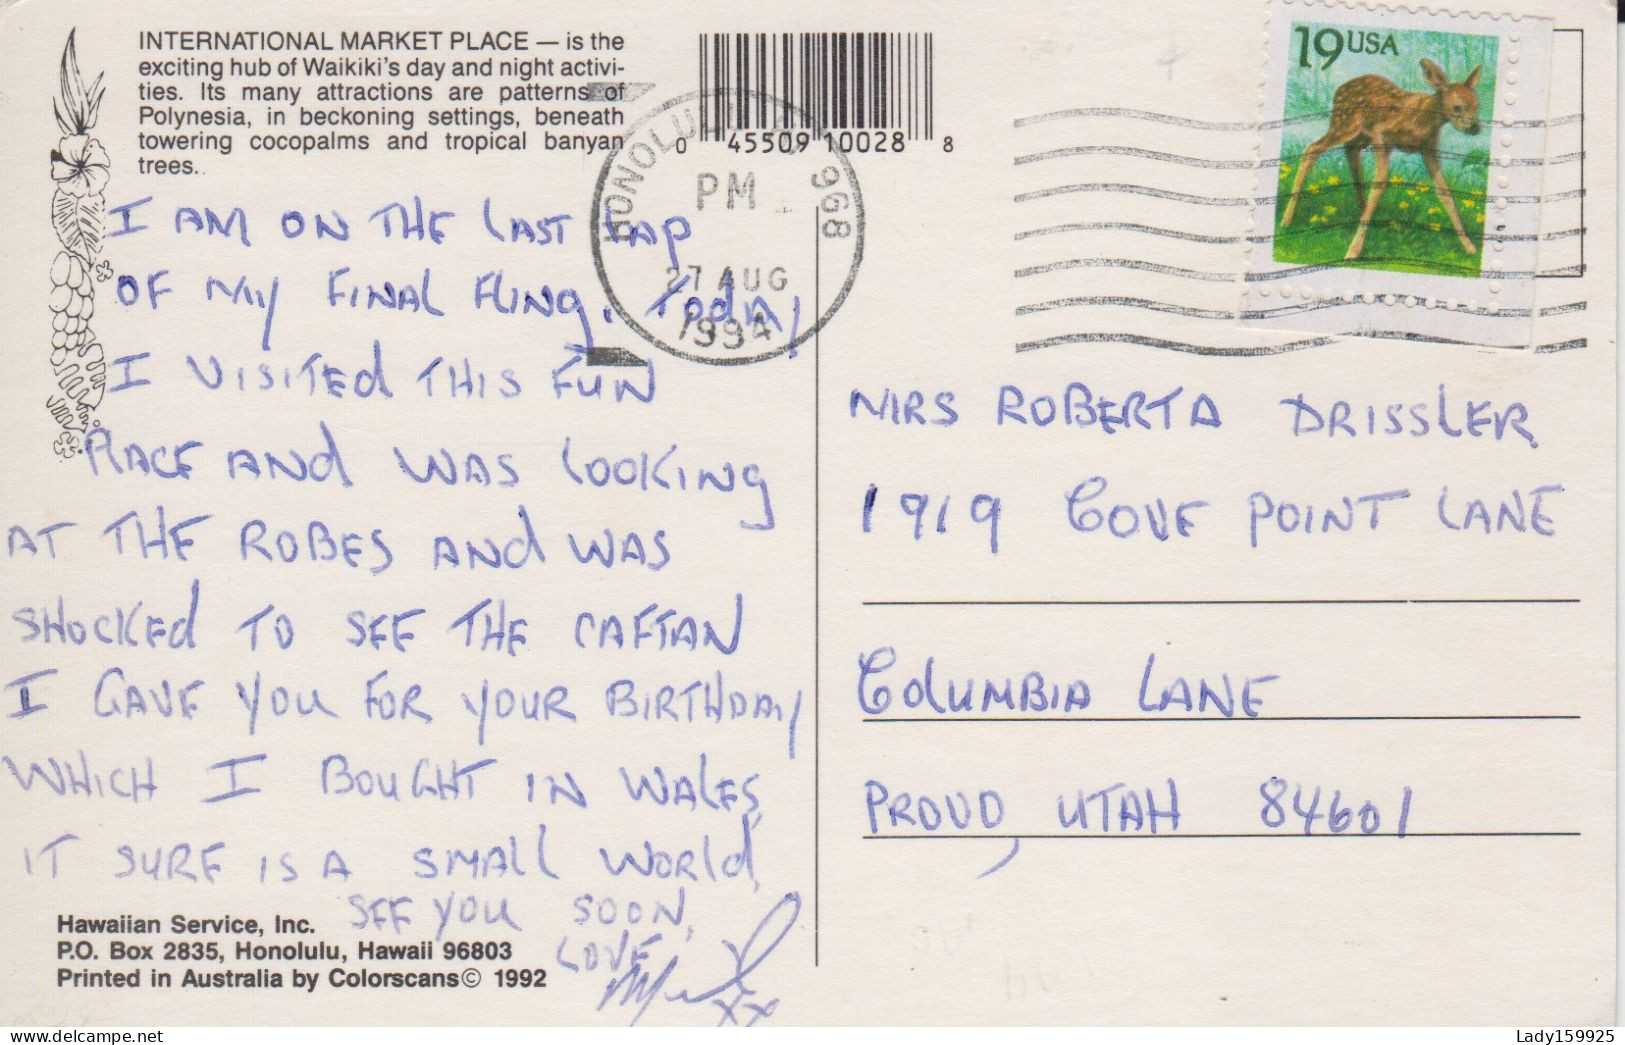 INTERNATIONAL MARKET PLACE — is the
exciting hub of Waikiki's day and night activi-
ties. Its many attractions are patterns of
Polynesia, in beckoning settings, beneath
towering cocopalms and tropical banyan
trees.
0 45509 10028 8
HONOLULU, HI 968
PM
27 AUG
1994
19USA
I AM ON THE LAST LAP
OF MY FINAL FLING. TODAY
I VISITED THIS FUN
PLACE AND WAS LOOKING
AT THE ROBES AND WAS
SHOCKED TO SEE THE CAFTAN
I GAVE YOU FOR YOUR BIRTHDAY
WHICH I BOUGHT IN WALES,
IT SURE IS A SMALL WORLD,
SEE YOU SOON,
LOVE
XX
MRS ROBERTA DRISSLER
1919 COVE POINT LANE
COLUMBIA LANE
PROVO, UTAH 84601
Hawaiian Service, Inc.
P.O. Box 2835, Honolulu, Hawaii 96803
Printed in Australia by Colorscans© 1992
delcampe.net
Lady159925